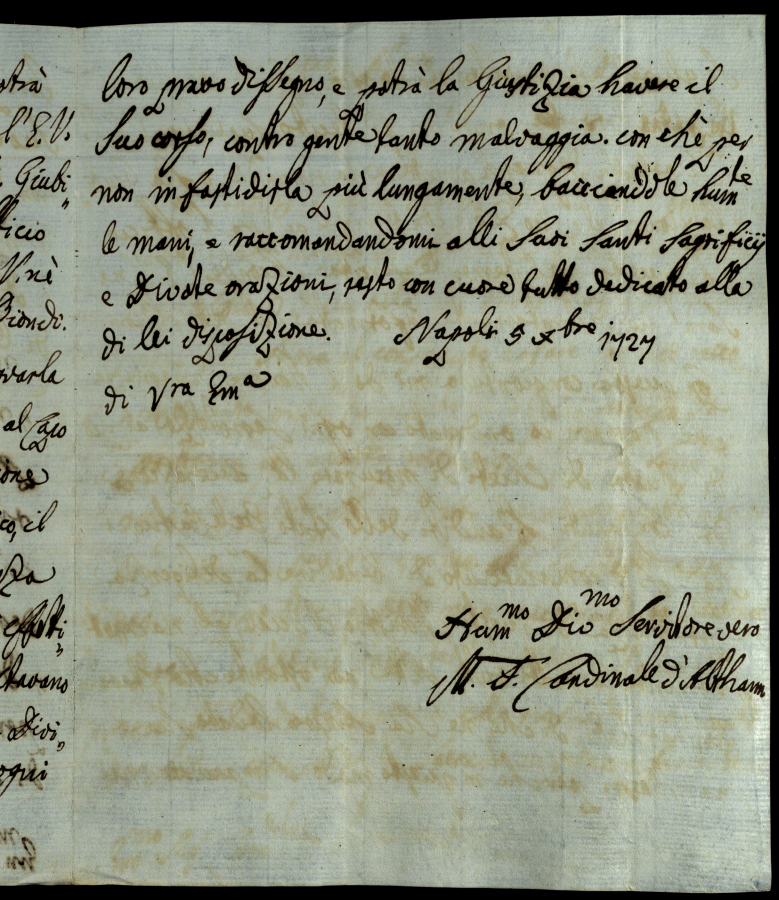 otrà
l'E.V.
Giubi„
ficio
V. nè
Biondi.
ovarla
al Capo
ione
co, il
nza
effetti„
tavano
Divi„
equi
loro pravo dissegno, e potrà la Giustizia havere il
suo corso, contro gente tanto malvaggia. con chè per
non infastidirla più lungamente, bacciandole humte
le mani, e raccomandandomi alli suoi santi sagrificij
e Divote orazioni, resto con cuore tutto dedicato alla
di lei disposizione. Napoli 5 xbre 1727
di Vra Ema
Hummo Divmo Servitore vero
M. F. Cardinale d'Althann